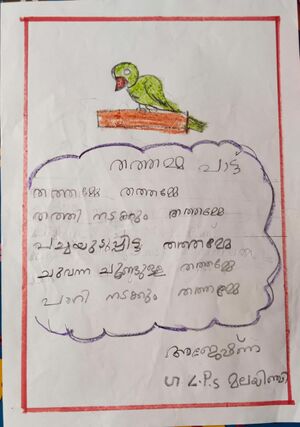 തത്തമ്മ പാട്ട്
തത്തമ്മേ തത്തമ്മേ
തത്തി നടക്കും തത്തമ്മേ
പച്ചയുടുപ്പിട്ട തത്തമ്മേ
ചുവന്ന ചുണ്ടുള്ള തത്തമ്മേ
പാറി നടക്കും തത്തമ്മേ
L.P.S മലയിഞ്ചി